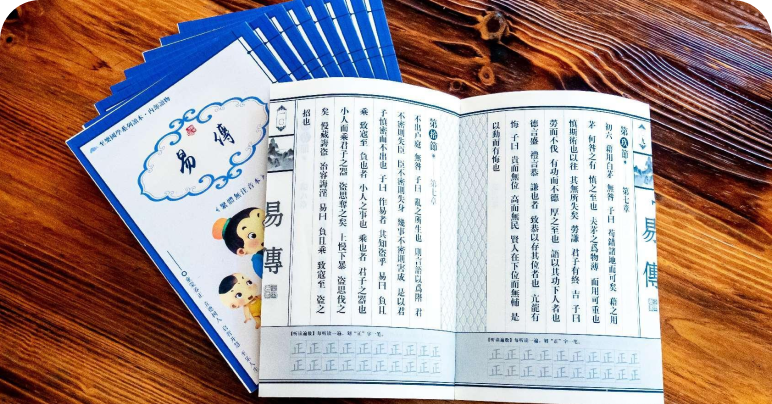 全樂國學系列讀本·內部讀物
易傳
《繁體無注音本》
易傳
第玖節 · 第七章
初六 藉用白茅 無咎 子曰 苟錯諸地而可矣 藉之用
茅 何咎之有 慎之至也 夫茅之爲物薄 而用可重也
慎斯術也以往 其無所失矣 勞謙 君子有終 吉 子曰
勞而不伐 有功而不德 厚之至也 語以其功下人者也
德言盛 禮言恭 謙也者 致恭以存其位者也 亢龍有
悔 子曰 貴而無位 高而無民 賢人在下位而無輔 是
以動而有悔也
【听读遍数】每听读一遍，划“正”字一笔。
正正正正正正正正正正
正正正正正正正正正正
第拾節 · 第七章
不出戶庭 無咎 子曰 亂之所生也 則言語以爲階 君
不密則失臣 臣不密則失身 幾事不密則害成 是以君
子慎密而不出也 子曰 作易者 其知盜乎 易曰 負且
乘 致寇至 負也者 小人之事也 乘也者 君子之器也
小人而乘君子之器 盜思奪之矣 上慢下暴 盜思伐之
矣 慢藏誨盜 冶容誨淫 易曰 負且乘 致寇至 盜之
招也
易傳
【听读遍数】每听读一遍，划“正”字一笔。
正正正正正正正正正正
正正正正正正正正正正